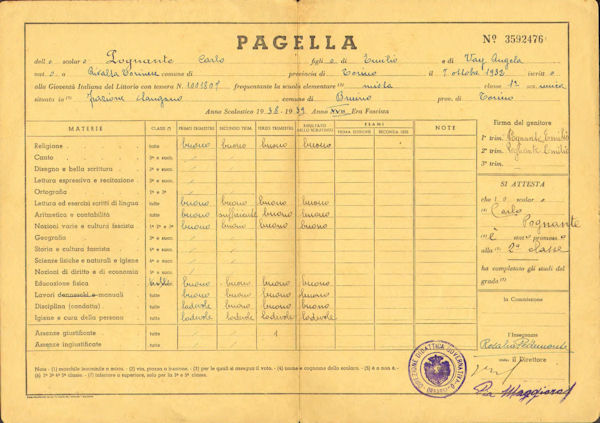 PAGELLA
Nº 3592476
dell o scolar o Pognante Carlo figli o di Emilio e di Vay Angela
nat o a Rivalta Torinese comune di provincia di Torino il 7 ottobre 1932 iscritt o
alla Gioventù Italiana del Littorio con tessera N. 1001807 frequentante la scuola elementare mista classe 1ª sez. unica
situata in frazione comune di Bruino prov. di Torino
Anno Scolastico 1938 - 1939 XVII Era Fascista
MATERIE CLASSE PRIMO TRIMESTRE SECONDO TRIM. TERZO TRIMESTRE RISULTATO DELLO SCRUTINIO ESAMI PRIMA SESSIONE SECONDA SESS. NOTE
Religione tutte buono buono buono buono
Canto 1ª e succ.
Disegno e bella scrittura 1ª e succ.
Lettura espressiva e recitazione 1ª e succ.
Ortografia
Lettura ed esercizi scritti di lingua tutte buono buono buono buono
Aritmetica e contabilità tutte buono sufficiente buono buono
Nozioni varie e cultura fascista 1ª 2ª e 3ª buono buono buono buono
Geografia
Storia e cultura fascista
Scienze fisiche e naturali e igiene
Nozioni di diritto e di economia 5ª e succ.
Educazione fisica tutte buono buono buono buono
Lavori donneschi e manuali tutte buono buono buono buono
Disciplina (condotta) tutte lodevole lodevole lodevole lodevole
Igiene e cura della persona tutte lodevole lodevole lodevole lodevole
Assenze giustificate tutte 1
Assenze ingiustificate tutte
Firma del genitore
1º trim. Pognante Emilio
2º trim. Pognante Emilio
3º trim.
SI ATTESTA
che l o scolar o
Carlo
Pognante
è stat o promoss o
alla 2ª classe
ha completato gli studi del
grado
La Commissione
l'Insegnante
Rosalia
visto il Direttore
DIREZIONE DIDATTICA GOVERNATIVA
Note - (1) maschile femminile o mista. (2) via, piazza o frazione. (3) per le quali si assegna il voto. (4) nome e cognome dello scolaro. (5) è o non è.
(6) 1ª 2ª 3ª 4ª 5ª classe. (7) inferiore o superiore, solo per la 3ª e 5ª classe.